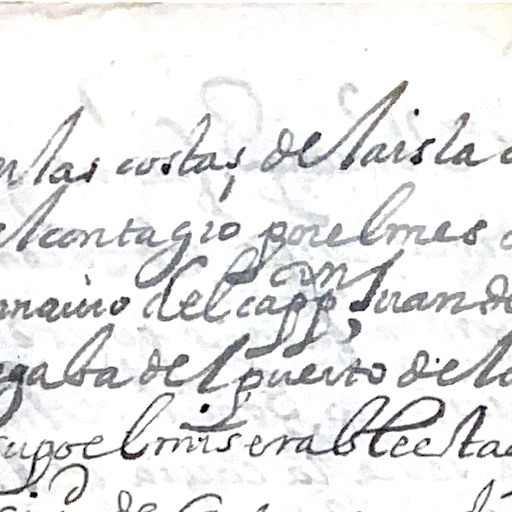 en las costas, de la isla
el contagio por el mes
navio del capp.^n Juan de
gaba del puerto de la
supo el miserable esta